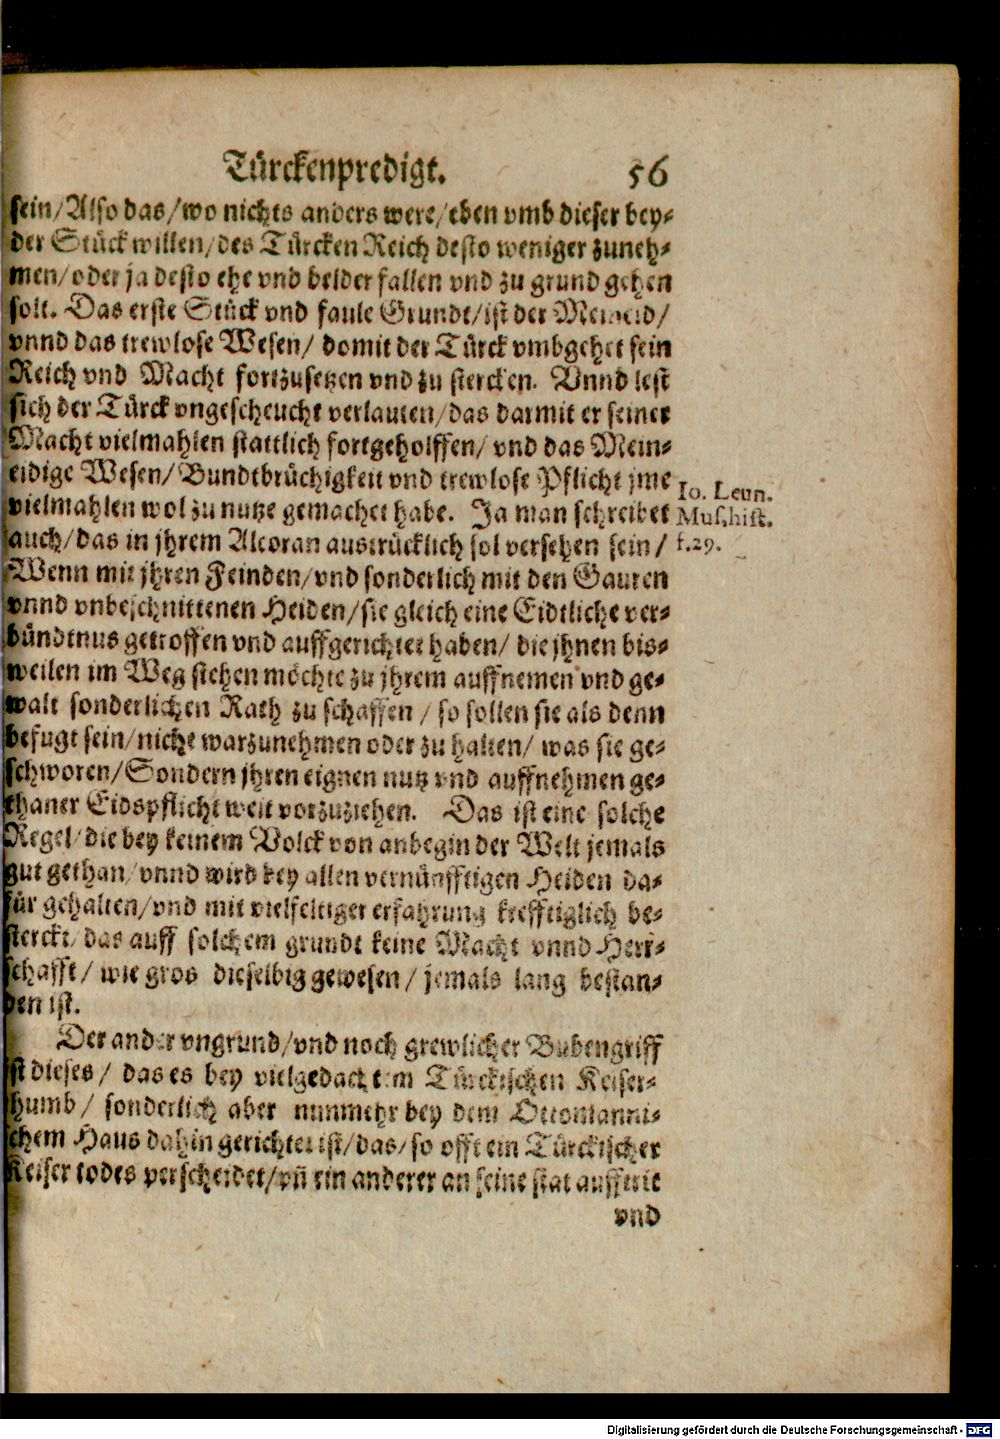 Türckenpredigt. 56
sein/Also das/wo nichts anders were/eben vmb dieser bey-
der Stück willen/des Türcken Reich desto weniger zuneh-
men/oder ja desto ehe vnd belder fallen vnd zu grund gehen
soll. Das erste Stück vnd faule Grundt/ist der Meineid/
vnnd das trewlose Wesen/ domit der Türck vmbgehet sein
Reich vnd Macht fortzusetzen vnd zu stercken. Vnnd lest
sich der Türck vngescheucht verlauten/das darmit er seiner
Macht vielmahlen stattlich fortgeholffen/ vnd das Mein-
eidige Wesen/ Bundtbrüchigkeit vnd trewlose Pflicht jme
vielmahlen wol zu nutze gemachet habe. Ja man schreibet
auch/das in jhrem Alcoran austrücklich sol versehen sein/
Io. Leun.
Mus.hist.
f.29.
Wenn mit jhren Feinden/vnd sonderlich mit den Gauren
vnnd vnbeschnittenen Heiden/sie gleich eine Eidtliche ver-
bündtnus getroffen vnd auffgerichtet haben/ die jhnen bis-
weilen im Weg stehen möchte zu jhrem auffnemen vnd ge-
walt sonderlichen Rath zu schaffen / so sollen sie als denn
befugt sein/nicht warzunehmen oder zu halten/ was sie ge-
schworen/Sondern jhren eignen nutz vnd auffnehmen ge-
thaner Eidspflicht weit vorzuziehen. Das ist eine solche
Regel/die bey keinem Volck von anbegin der Welt jemals
gut gethan/vnnd wird bey allen vernünfftigen Heiden da-
für gehalten/vnd mit vielfeltiger erfahrung krefftiglich be-
sterckt/ das auff solchem grundt keine Macht vnnd Herr-
schafft/ wie gros dieselbig gewesen/ jemals lang bestan-
den ist.
Der ander vngrund/vnd noch grewlicher Bubengriff
ist dieses/ das es bey vielgedachtem Türckischen Keiser-
thumb/ sonderlich aber nunmehr bey dem Ottomanni-
schem Haus dahin gerichtet ist/das/so offt ein Türckischer
Keiser todes verscheidet/vñ ein anderer an seine stat aufftrit
vnd
Digitalisierung gefördert durch die Deutsche Forschungsgemeinschaft - DFG